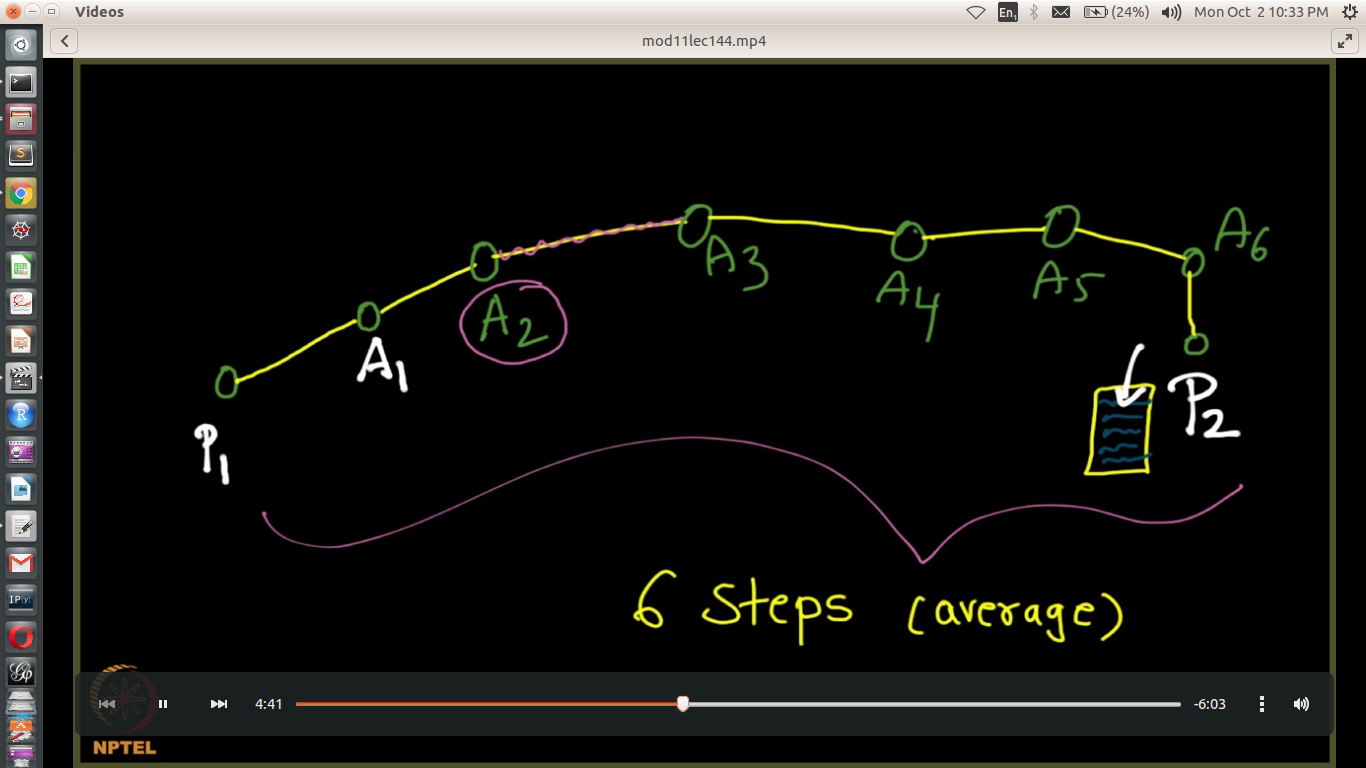 Videos
En1
(24%)
Mon Oct 2 10:33 PM
mod11lec144.mp4
P1
A1
A2
A3
A4
A5
A6
P2
6 Steps (average)
4:41
-6:03
NPTEL
S
R
IP